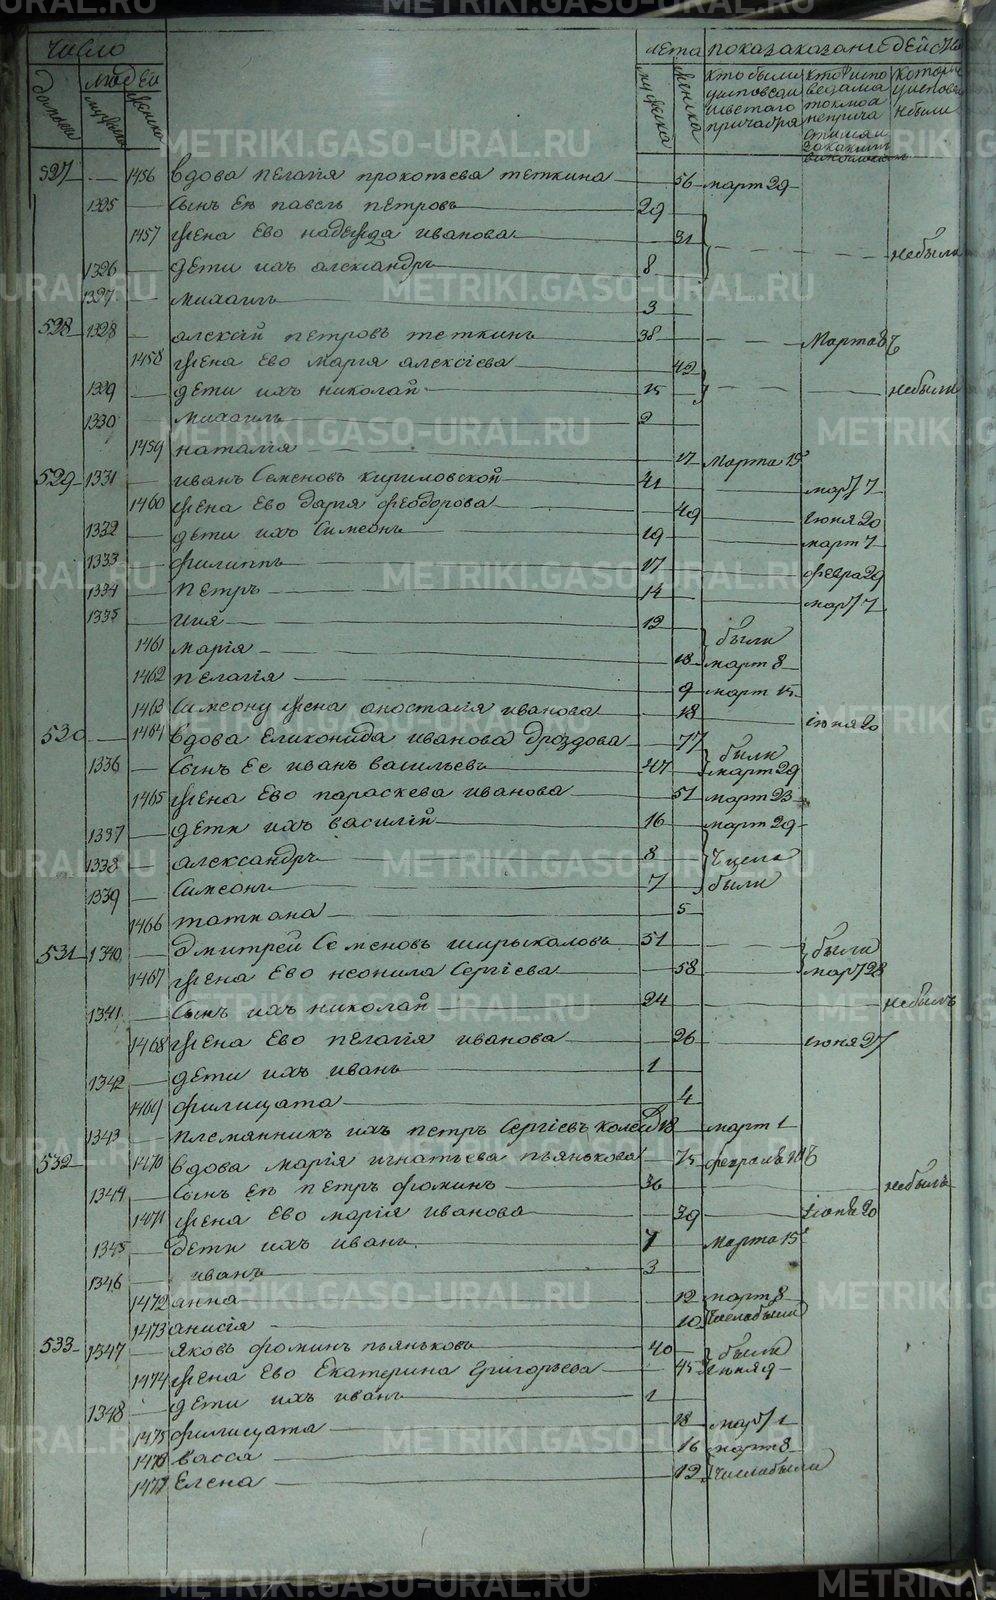 число лета показаказание действа
домовъ людей мужска женска мужска женска кто были у исповеди и светаго причастия кто же исповедался токмо а не причастился и за какимъ винословиемъ которые у исповеди небыли
527 — 1456 вдова пелагия прокопьева теткина — 56 март 29
1325 — сынъ еѣ павелъ петровъ 29
1457 жена ево надежда иванова — 31 небыли
1326 — дети ихъ александръ 8
1327 — михаилъ 3
528 1328 — алексѣй петровъ теткинъ 38 — Марта 8
1458 жена ево мария алексiева — 42
1329 — дети ихъ николай 15 — небыли
1330 — михаилъ 2
1459 наталия — 17 Марта 15
529 1331 — иванъ Семеновъ кириловской 41 — март 7
1460 жена ево дария феодорова — 49 июня 20
1332 — дети ихъ Симеонъ 19 март 7
1333 — филиппъ 17 февра 29
1334 — петръ 14 март 7
1335 — илия 12
1461 марiя — 18 были март 8
1462 пелагiя — 9 март 15
1463 Симеону жена анастасия иванова — 18 июня 20
530 — 1464 вдова еликонида иванова дроздова — 77 были
1336 — сынъ ее иванъ васильевъ 47 март 29
1465 жена ево параскева иванова — 51 март 23
1337 — дети ихъ василий 16 март 29
1338 — александръ 8 У исп
1339 — Симеонъ 7 были
1466 татиана — 5
531 1340 — Дмитрей Семеновъ ширыкаловъ 51 — были
1467 жена ево неонила Сергiева — 58 март 28
1341 — Сынъ ихъ николай 24 — небылъ
1468 жена ево пелагiя иванова — 26 июня 27
1342 — дети ихъ иванъ 1
1469 филицата — 4
1343 — племянникъ ихъ петръ Сергiевъ 18 март 1
532 1470 вдова марiя игнатьева пьянькова — 75 февраля
1344 — Сынъ еѣ петръ фоминъ 36 — небылъ
1471 жена ево марiя иванова — 39 июня 20
1345 — дети ихъ иванъ 7 Марта 15
1346 — иванъ 3
1472 анна — 12 март 8
1473 анисiя — 10 были
533 1347 — Яковъ фоминъ пьяньковъ 40 — были
1474 жена ево Екатерина григорьева — 45 июня 9
1348 — дети ихъ иванъ 1
1475 филицата — 18 март 1
1476 васса — 16 март 8
1477 Елена — 12 были
METRIKI.GASO-URAL.RU